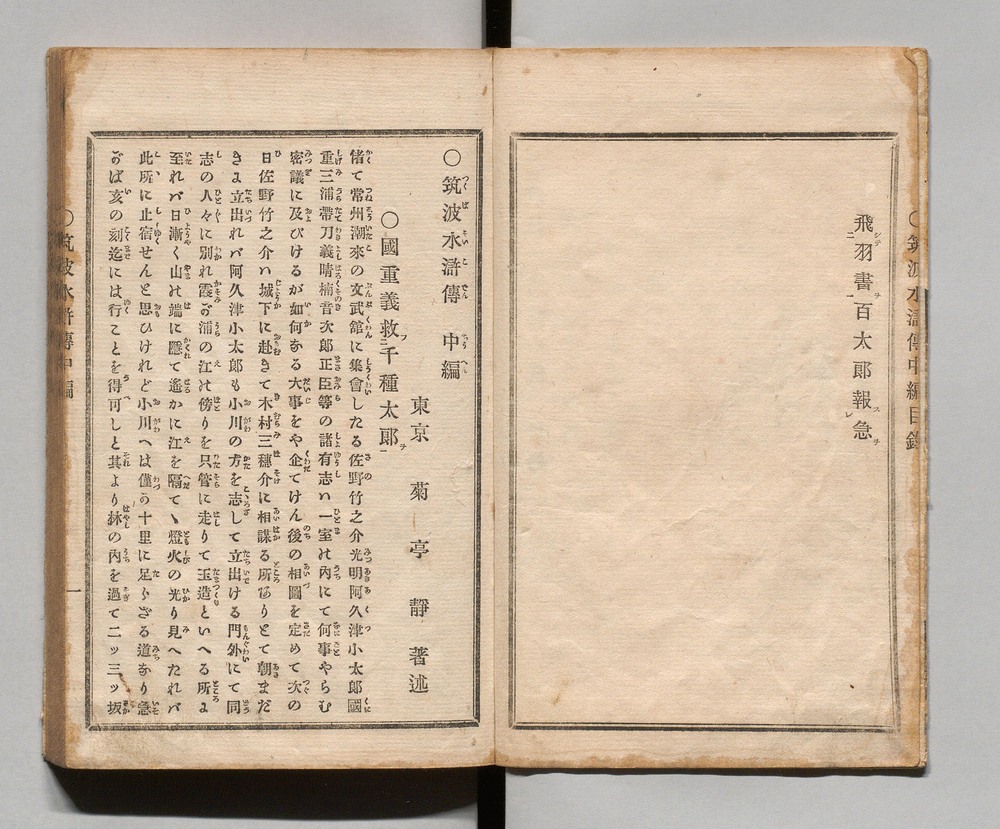 筑波水滸傳中編目錄
飛羽書百太郎報急
〇筑波水滸傳　中編
東京　菊亭靜著述
〇國重義救千種太郎
偖て常州潮來の文武舘に集會したる佐野竹之介光明阿久津小太郎國
重三浦帶刀義晴楠音次郎正臣等の諸有志ハ一室の內にて何事やらむ
密議に及びけるが如何なる大事をや企てけん後の相圖を定めて次の
日佐野竹之介ハ城下に赴きて木村三穗介に相謀る所ありとて朝まだ
きよ立出れバ阿久津小太郎も小川の方を志して立出ける門外にて同
志の人々に別れ霞が浦の江の傍りを只管に走りて玉造といへる所よ
至れバ日漸く山の端に隱て遙かに江を隔てゝ燈火の光り見へたれバ
此所に止宿せんと思ひけれど小川へは僅か十里に足らざる道なり急
がば亥の刻迄には行ことを得可しと其より林の內を過て二ッ三ッ坂
〇筑波水滸傳中編
一